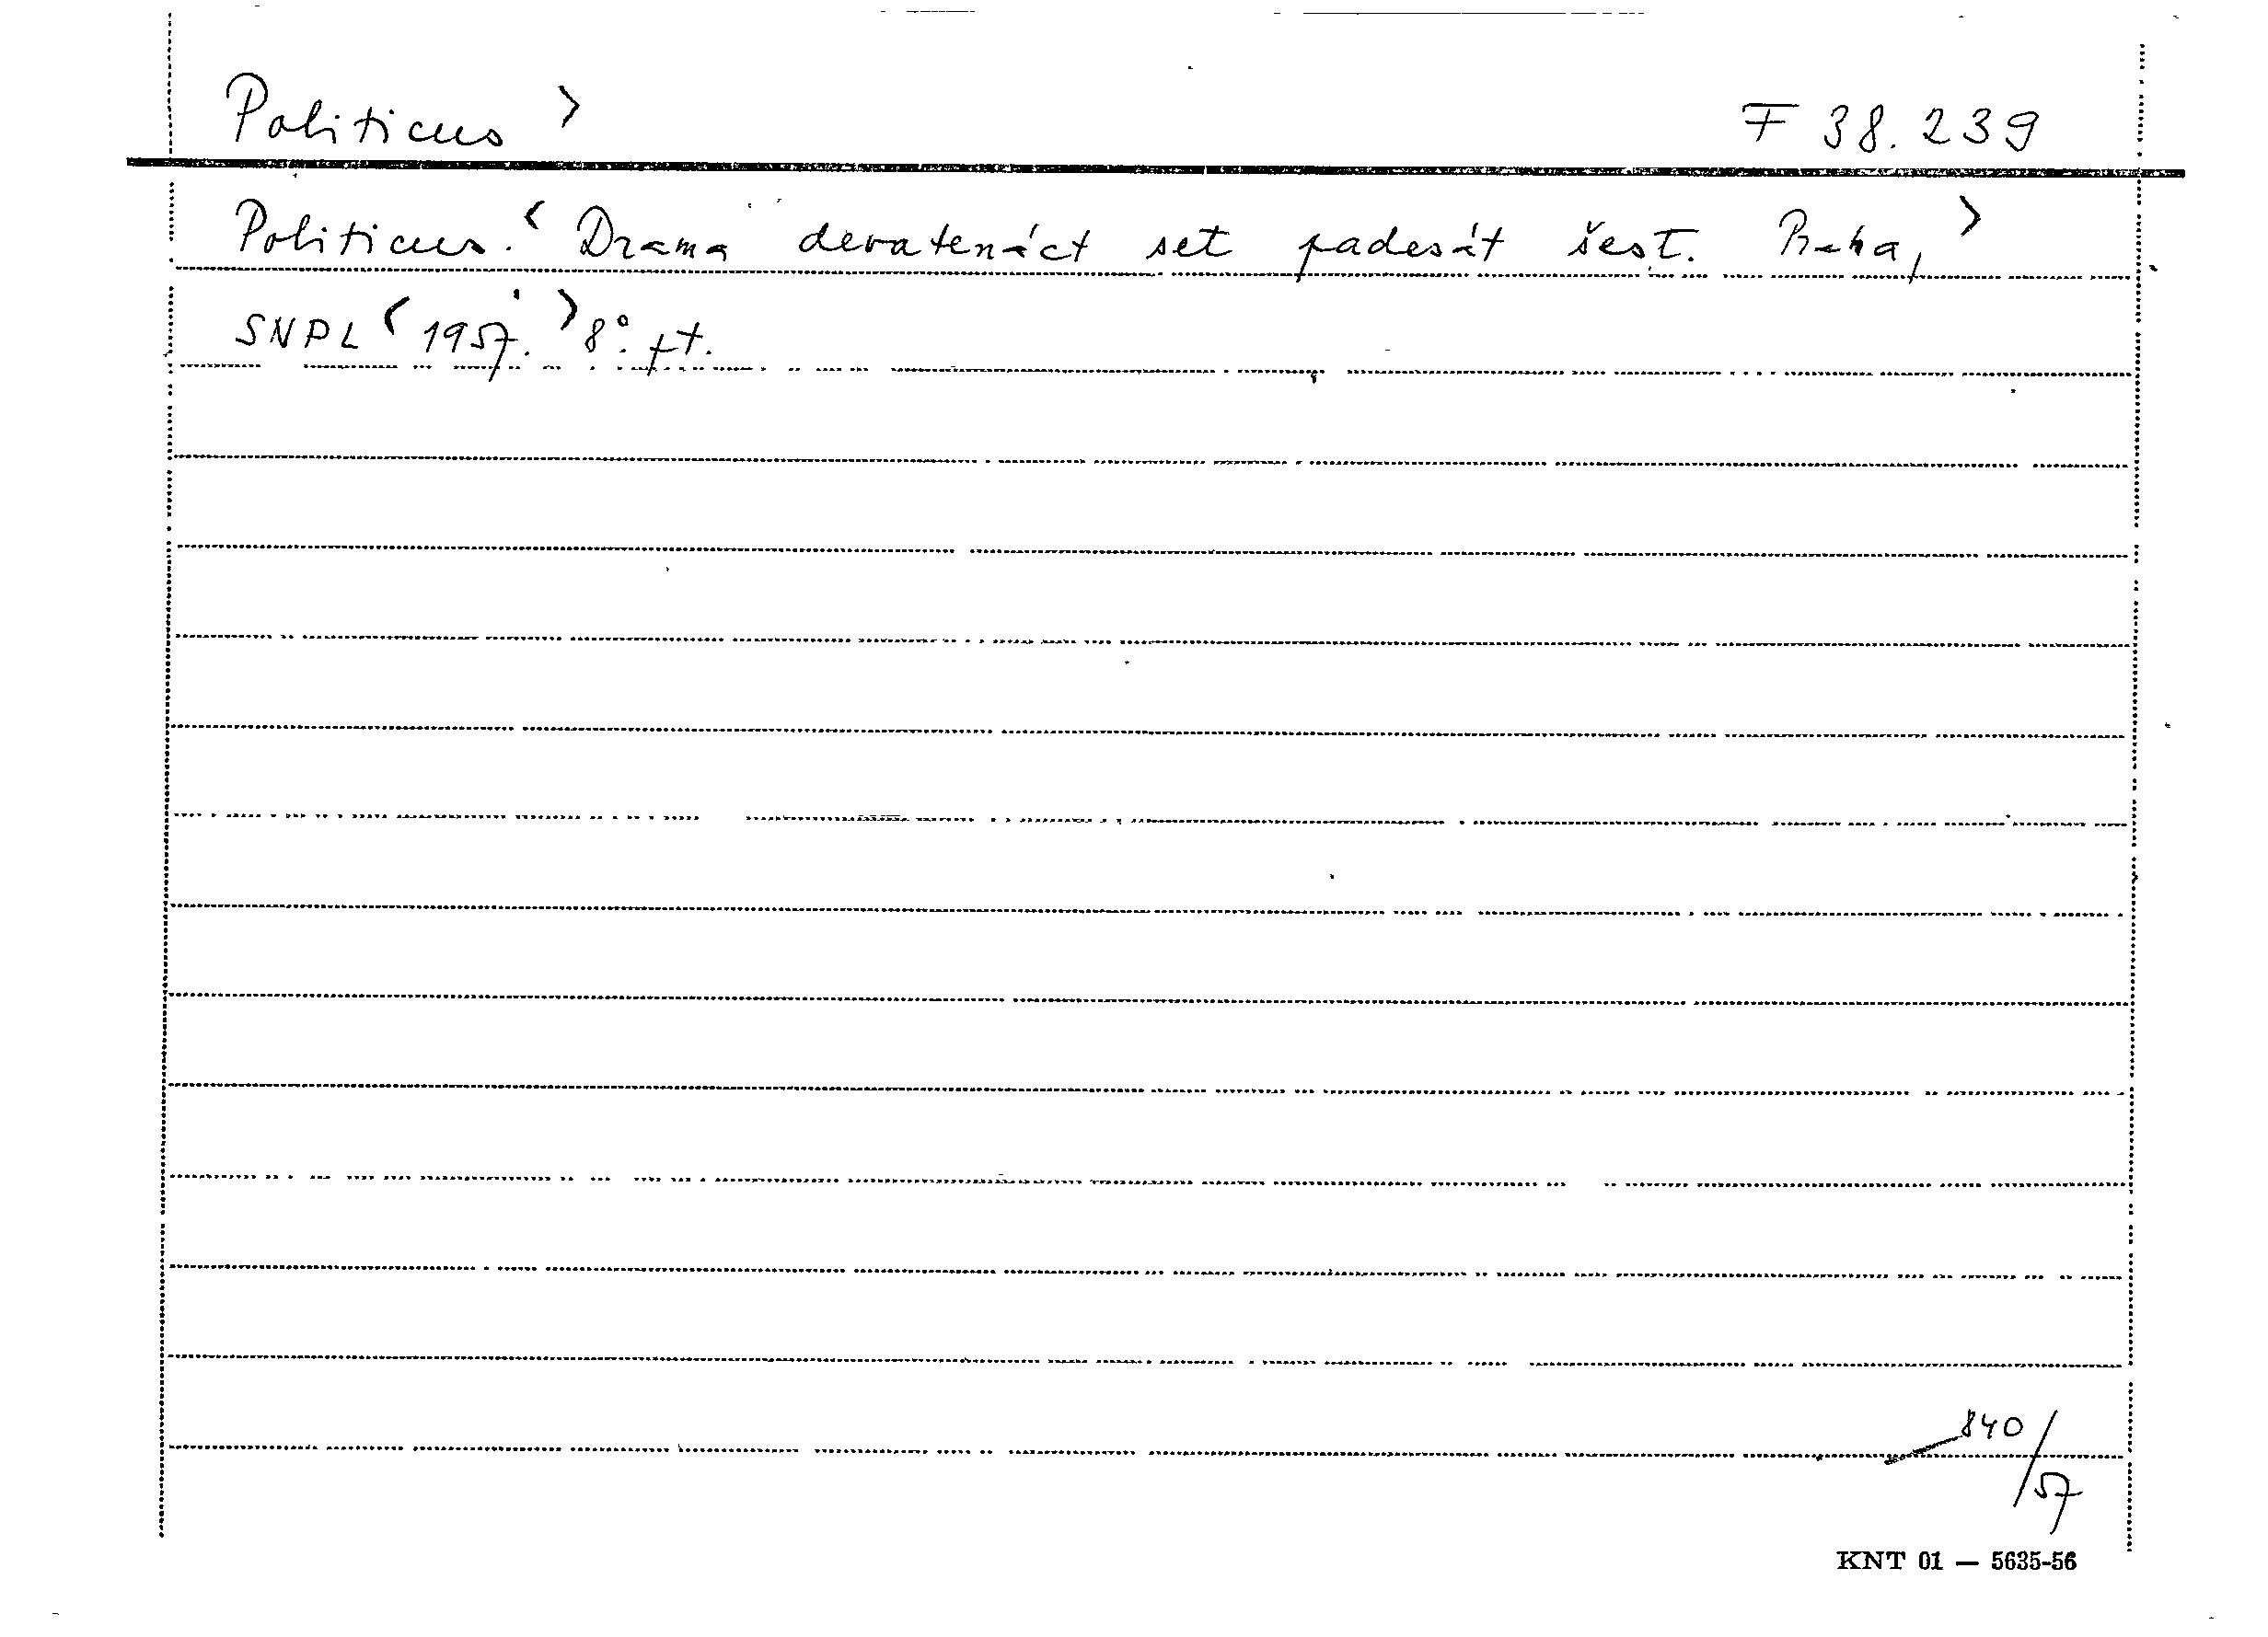 Politicus >
F 38.239
Politicus. < Drama devatenáct set padesát šest. Praha, >
SNPL < 1957. > 8°. pt.
840/57
KNT 01 — 5635-56